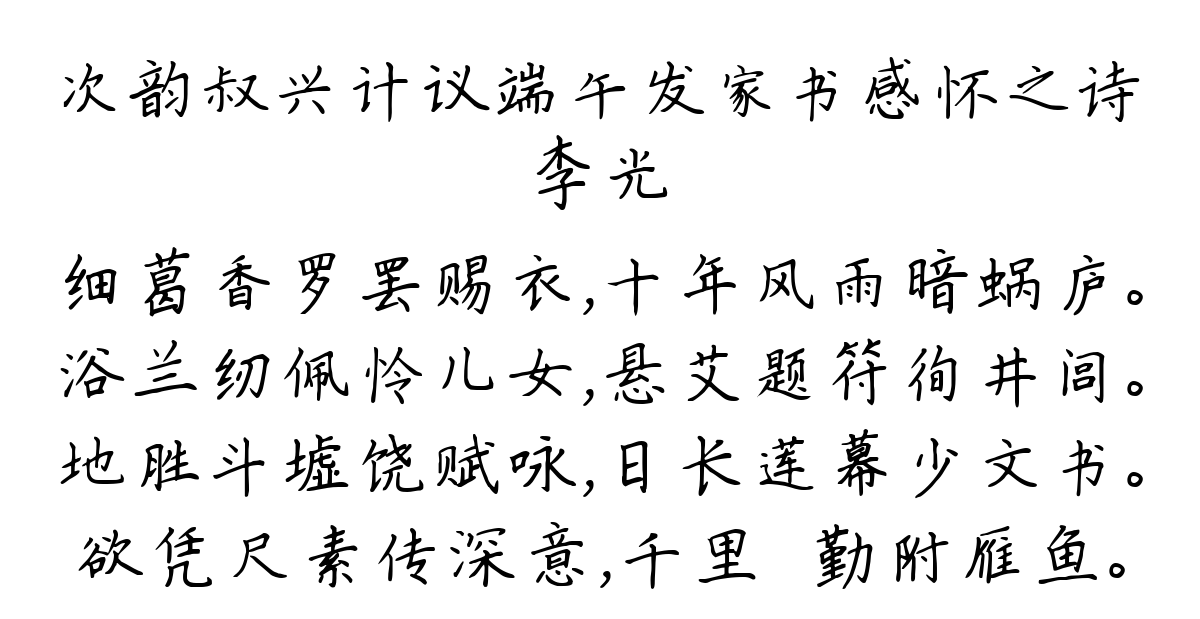 次韵叔兴计议端午发家书感怀之诗
李光
细葛香罗罢赐衣,十年风雨暗蜗庐。
浴兰纫佩怜儿女,悬艾题符徇井闾。
地胜斗墟饶赋咏,日长莲幕少文书。
欲凭尺素传深意,千里 勤附雁鱼。